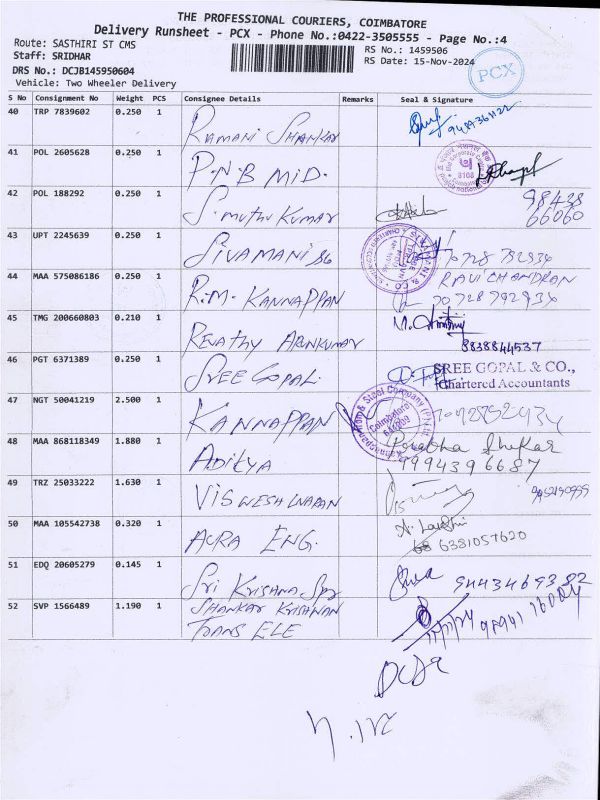 THE PROFESSIONAL COURIERS, COIMBATORE
Delivery Runsheet - PCX - Phone No.:0422-3505555 - Page No.:4
Route: SASTHIRI ST CMS
RS No.: 1459506
Staff: SRIDHAR
RS Date: 15-Nov-2024
PCX
DRS No.: DCJB145950604
Vehicle: Two Wheeler Delivery
S No Consignment No Weight PCS Consignee Details Remarks Seal & Signature
40 TRP 7839602 0.250 1 Ramani Shankar
41 POL 2605628 0.250 1 P.N.B MID. 8108
42 POL 188292 0.250 1 S. muthu Kumar 98438
66060
43 UPT 2245639 0.250 1 SIVAMANI & CO 70728 792934
44 MAA 575086186 0.250 1 R.M. KANNAPPAN RAVICHANDRAN
70728 792934
45 TMG 200660803 0.210 1 Revathy Arunkumar
9838844537
46 PGT 6371389 0.250 1 SREE GOPAL. SREE GOPAL & CO.,
Chartered Accountants
47 NGT 50041219 2.500 1 KANNAPPAN
Kannappan Iron & Steel Company (P) Ltd
Coimbatore
48 MAA 868118349 1.880 1 ADITYA Prabha Shekar
9994396687
49 TRZ 25033222 1.630 1 VISWESHWARAN
50 MAA 105542738 0.320 1 AURA ENG.
6381057620
51 EDQ 20605279 0.145 1 Sri Krishna 9443469382
52 SVP 1566489 1.190 1 SHANKAR KRISHNAN
TRANS ELE